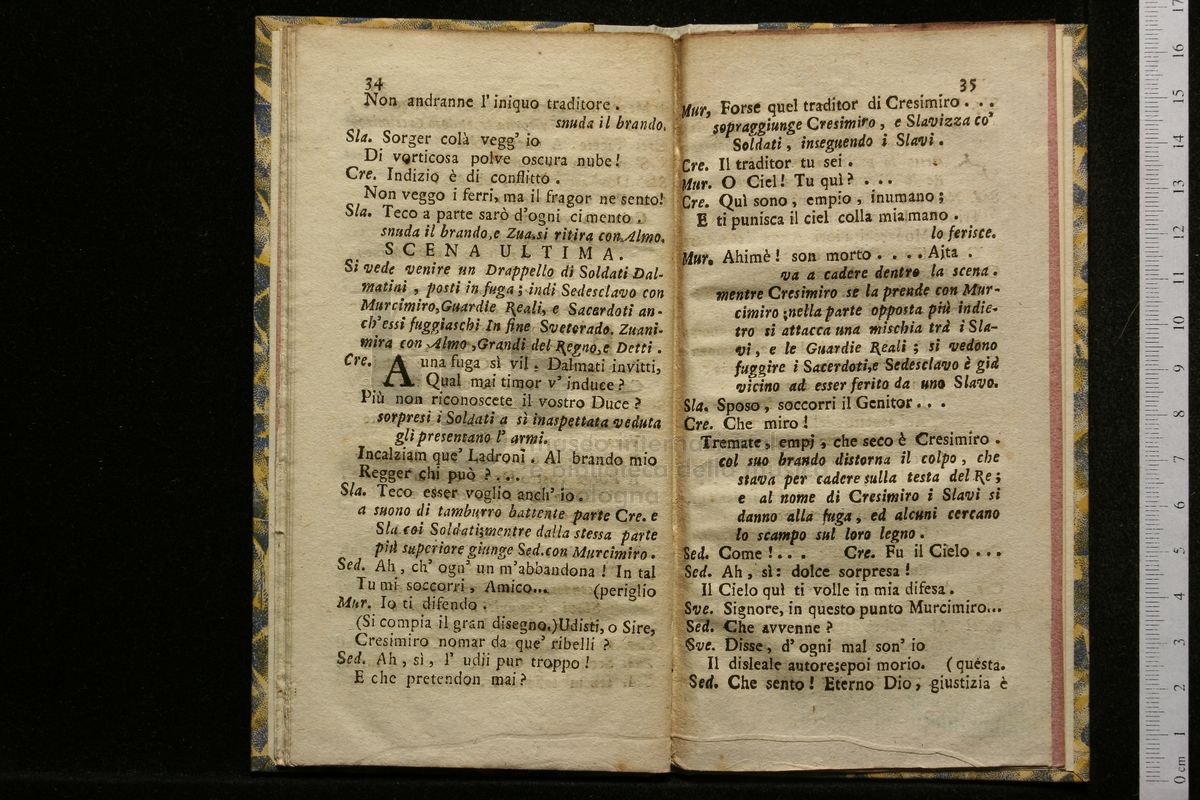 34
Non andranne l' iniquo traditore .
snuda il brando.
Sla. Sorger colà vegg' io
Di vorticosa polve oscura nube!
Cre. Indizio è di conflitto .
Non veggo i ferri, ma il fragor ne sento!
Sla. Teco a parte sarò d'ogni cimento .
snuda il brando, e Zua. si ritira con Almo.
SCENA ULTIMA.
Si vede venire un Drappello di Soldati Dal-
matini , posti in fuga ; indi Sedesclavo con
Murcimiro, Guardie Reali, e Sacerdoti an-
ch' essi fuggiaschi In fine Sveterado. Zuani-
mira con Almo , Grandi del Regno, e Detti .
Cre. A una fuga sì vil . Dalmati invitti,
Qual mai timor v' induce ?
Più non riconoscete il vostro Duce ?
sorpresi i Soldati a sì inaspettata veduta
gli presentano l' armi.
Incalziam que' Ladroni . Al brando mio
Regger chi può ? ...
Sla. Teco esser voglio anch' io .
a suono di tamburro battente parte Cre. e
Sla coi Soldati; mentre dalla stessa parte
più superiore giunge Sed. con Murcimiro .
Sed. Ah, ch' ogn' un m'abbandona ! In tal
Tu mi soccorri , Amico... (periglio
Mur. Io ti difendo .
(Si compia il gran disegno.) Udisti, o Sire,
Cresimiro nomar da que' ribelli ?
Sed. Ah , sì , l' udii pur troppo !
E che pretendon mai ?
35
Mur, Forse quel traditor di Cresimiro . . .
sopraggiunge Cresimiro , e Slavizza co'
Soldati , inseguendo i Slavi .
Cre. Il traditor tu sei .
Mur. O Ciel ! Tu quì ? . . .
Cre. Quì sono , empio , inumano ;
E ti punisca il ciel colla mia mano .
lo ferisce.
Mur. Ahimè ! son morto . . . . Aita .
va a cadere dentro la scena .
mentre Cresimiro se la prende con Mur-
cimiro ; nella parte opposta più indie-
tro si attacca una mischia trà i Sla-
vi , e le Guardie Reali ; si vedono
fuggire i Sacerdoti, e Sedesclavo è già
vicino ad esser ferito da uno Slavo.
Sla. Sposo , soccorri il Genitor . . .
Cre. Che miro !
Tremate , empj , che seco è Cresimiro .
col suo brando distorna il colpo , che
stava per cadere sulla testa del Re ;
e al nome di Cresimiro i Slavi si
danno alla fuga , ed alcuni cercano
lo scampo sul loro legno .
Sed. Come ! . . . Cre. Fu il Cielo . . .
Sed. Ah , sì : dolce sorpresa !
Il Cielo quì ti volle in mia difesa .
Sve. Signore, in questo punto Murcimiro...
Sed. Che avvenne ?
Sve. Disse , d' ogni mal son' io
Il disleale autore; e poi morio. ( questa.
Sed. Che sento ! Eterno Dio , giustizia è
museo internazionale
e biblioteca della musica
bologna
0 cm 1 2 3 4 5 6 7 8 9 10 11 12 13 14 15 16 17